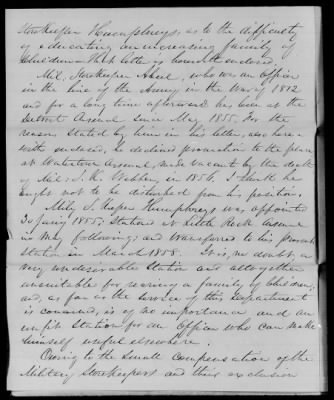 Storekeeper Humphreys, as to the difficulty
of educating an increasing family of
children - That letter is herewith enclosed.
Mil. Storekeeper Abeel, who was an Officer
in the line of the Army in the War of 1812
and for a long time afterward has been at the
Detroit Arsenal since May 1855. For the
reasons stated by him in his letter, also here-
with enclosed, he declined promotion to the place
at Watertown Arsenal, made vacant by the death
of Mil. S. K. Webber, in 1856. I think he
ought not to be disturbed from his position.
Mily. S. Keeper Humphreys was appointed
in 1855; Stationed at Little Rock Arsenal
in May following; and transferred to his present
station in March 1858. It is, no doubt, a
very undesirable station and altogether
unsuitable for rearing a family of children;
and, as far as the service of this Department
is concerned, is of no importance and an
unfit Station for an Officer who can make
himself useful elsewhere.
Owing to the small compensation of the
Military Storekeepers and their exclusion